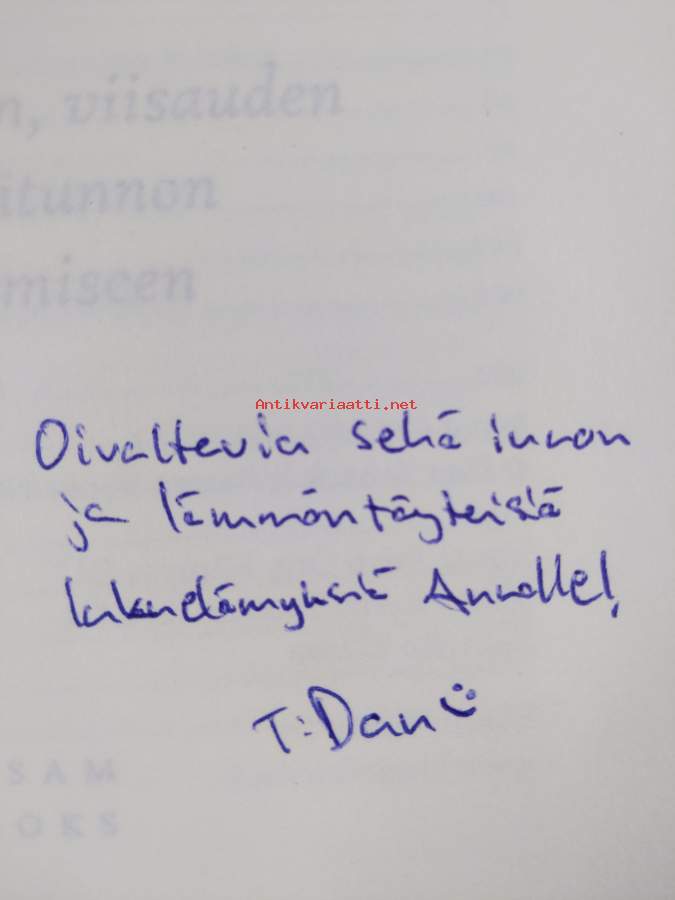 n, viisauden
itunnon
miseen
Antikvariaatti.net
Oivaltavia sekä innon
ja lämmöntäyteisiä
lukuelämyksiä Annalle!,
T: Dan
SAM
OKS